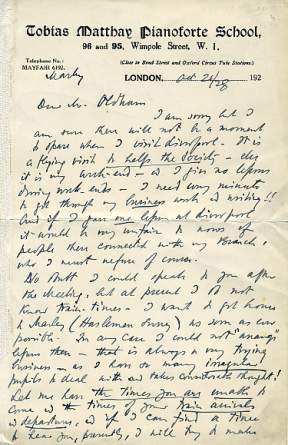 Tobias Matthay Pianoforte School,
96 and 95, Wimpole Street, W. 1.
Telephone No.:
MAYFAIR 6192.
(Close to Bond Street and Oxford Circus Tube Stations.)
Marley
LONDON, Oct 21/28 192
Dear Mr. Oldham
I am sorry but I
am sure there will not be a moment
to spare when I visit Liverpool. It is
a flying visit to helps the Society -
it is my week-end - & I give no lessons
during week-ends - I need every minute
to get through my business work & writing!!
And if I gave one lesson at Liverpool
it would be very unfair to scores of
people there connected with my Branch,
who I must refuse of course.
No doubt I could speak to you after
the Meeting, but at present I do not
know train-times - I want to get home
to Marley (Haslemere Surrey) as soon as ever
possible. In any case I could not "arrange"
lessons then - that is always a very trying
business - as I have so many irregular
pupils to deal with and takes considerable thought!
Let me have the times you are unable to
come & the times of your train arrivals
& departures, & if I can find a time
to hear you, presently, I will try to make